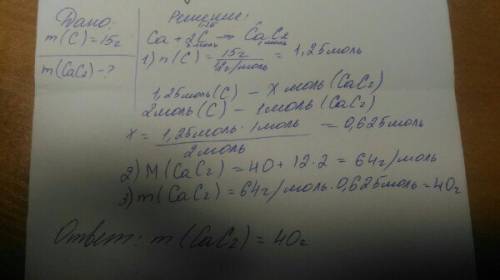 Дано:
m(C)=15г
m(CaC₂)-?
Решение:
1,25
Ca + 2C → CaC₂
2моль 1моль
1) n(C) = 15г / 12г/моль = 1,25моль
1,25моль(C) - X моль(CaC₂)
2моль(C) - 1моль(CaC₂)
X = 1,25моль·1моль / 2моль = 0,625моль
2) M(CaC₂) = 40 + 12·2 = 64г/моль
3) m(CaC₂) = 64г/моль·0,625моль = 40г
Ответ: m(CaC₂) = 40г